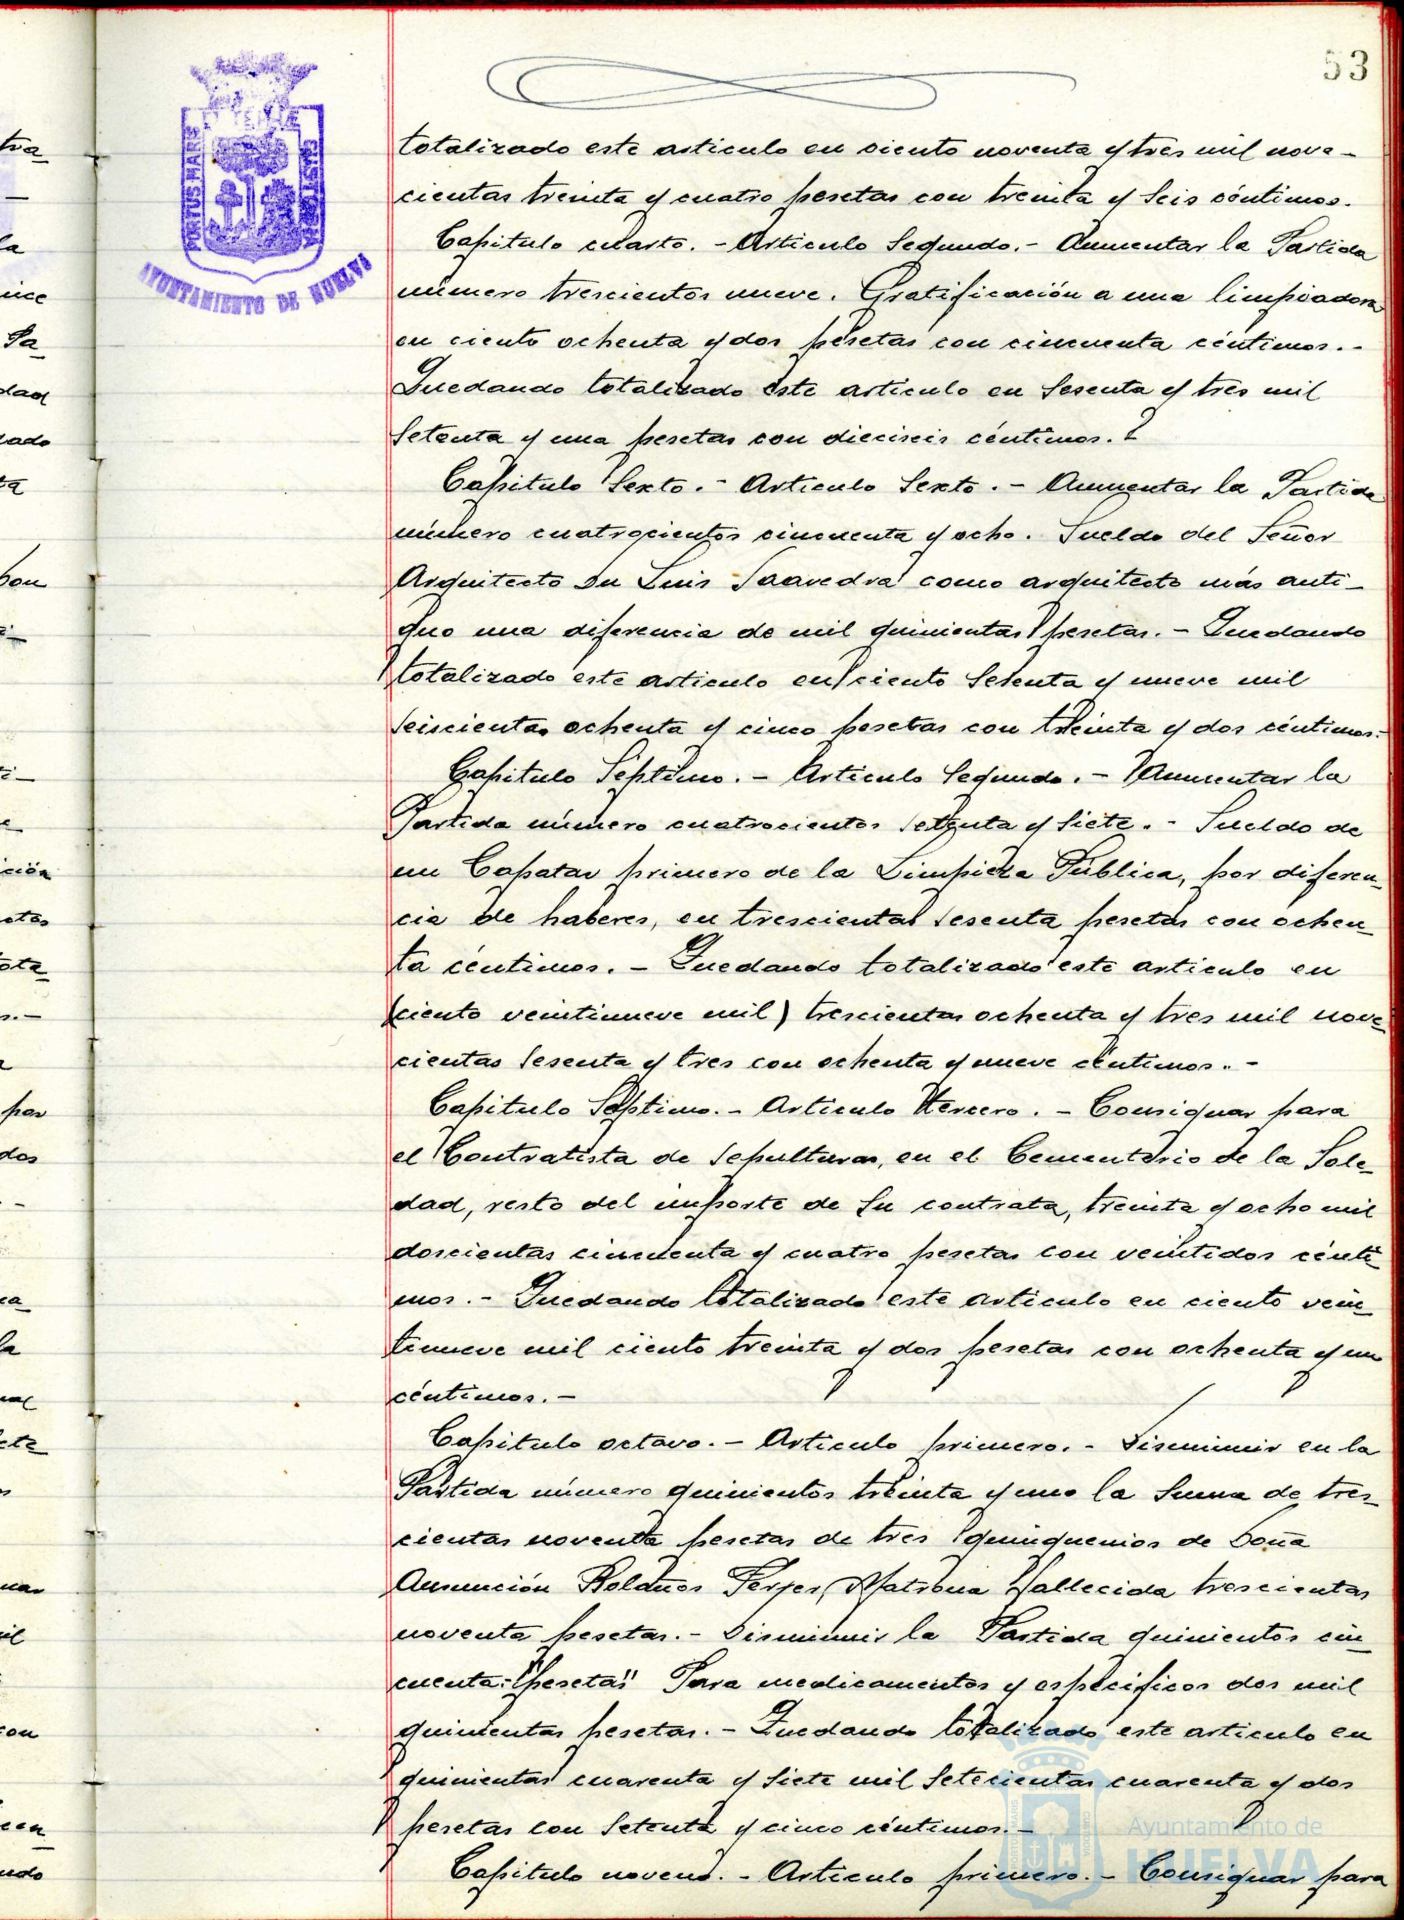 53
PORTUS MARIS ET TERRE CUSTODIA
AYUNTAMIENTO DE HUELVA
totalizado este articulo en ciento noventa y tres mil nove-
cientas treinta y cuatro pesetas con treinta y seis céntimos.
Capitulo cuarto. - Articulo Segundo. - Aumentar la Partida
número trescientos nueve. Gratificación a una limpiadora
en ciento ochenta y dos pesetas con cincuenta céntimos. -
Quedando totalizado este articulo en sesenta y tres mil
setenta y una pesetas con dieciseis céntimos.
Capitulo Sexto. - Articulo Sexto. - Aumentar la Partida
número cuatrocientos cincuenta y ocho. Sueldo del Señor
Arquitecto Dn Luis Saavedra como arquitecto más anti-
guo una diferencia de mil quinientas pesetas. - Quedando
totalizado este articulo en ciento setenta y nueve mil
seiscientas ochenta y cinco pesetas con treinta y dos céntimos. -
Capitulo Séptimo. - Articulo Segundo. - Aumentar la
Partida número cuatrocientos setenta y siete. - Sueldo de
un Capataz primero de la Limpieza Pública, por diferen-
cia de haberes, en trescientas sesenta pesetas con ochen-
ta céntimos. - Quedando totalizado este articulo en
(ciento veintinueve mil) trescientas ochenta y tres mil nove-
cientas sesenta y tres con ochenta y nueve céntimos. -
Capitulo Séptimo. - Articulo tercero. - Consignar para
el Contratista de Sepulturas, en el Cementerio de la Sole-
dad, resto del importe de su contrata, treinta y ocho mil
doscientas cincuenta y cuatro pesetas con veintidos cénti-
mos. - Quedando totalizado este articulo en ciento vein-
tinueve mil ciento treinta y dos pesetas con ochenta y un
céntimos. -
Capitulo octavo. - Articulo primero. - Disminuir en la
Partida número quinientos treinta y uno la suma de tres-
cientas noventa pesetas de tres quinquenios de Doña
Asunción Bolaños Matrona fallecida trescientas
noventa pesetas. - Disminuir la Partida quinientos cin-
cuenta: "peseta" Para medicamentos y especificos dos mil
quinientas pesetas. - Quedando totalizado este articulo en
quinientas cuarenta y siete mil setecientas cuarenta y dos
pesetas con setenta y cinco céntimos. -
Capitulo noveno. - Articulo primero. - Consignar para
Ayuntamiento de
HUELVA